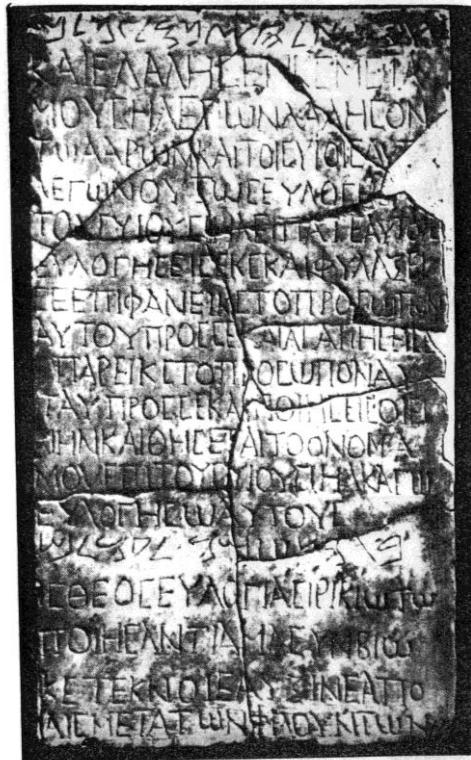 ΚΑΙΕΛΑΛΗϹΕΝΚϹΜΕΤΑ
ΜΟΥϹΗΛΕΓωΝΛΑΛΗϹΟΝ
ΤωΑΑΡωΝΚΑΙΤΟΙϹΥΙΟΙϹΑΥΤ
ΛΕΓωΝΟΥΤωϹΕΥΛΟΓΗ
ΤΟΥϹΥΙΟΥϹΙΗΛΕΙΠΑΤΕΑΥΤΟΙϹ
ΕΥΛΟΓΗϹΕΙϹΕΚϹΚΑΙΦΥΛΑΞΕΙ
ϹΕΕΠΙΦΑΝΕΙΚϹΤΟΠΡΟϹωΠΟΝ
ΑΥΤΟΥΠΡΟϹϹΕΚΑΙΑΓΑΠΗϹΕΙ
ΕΠΑΡΕΙΚϹΤΟΠΡΟϹωΠΟΝΑΥ
ΤΑΥΠΡΟϹϹΕΚΑΙΠΟΙΗϹΕΙϹΟΙΕΙ
ΡΗΝΗΝΚΑΙΘΗϹΕΤΑΙΤΟΟΝΟΜΑ
ΜΟΥΕΠΙΤΟΥϹΥΙΟΥϹΙΗΛΚΑΓω
ΕΥΛΟΓΗϹωΑΥΤΟΥϹ
ΙϹΘΕΟϹΕΥΛΟΓΙΑϹΙΡΙΚΙωΤω
ΠΟΙΗϹΑΝΤΙΑΜΑϹΥΝΒΙω
ΚΕΤΕΚΝΟΙϹΑΥΞΙΝΕΑΠΟ
ΛΙϹΜΕΤΑΤωΝΦΙΛΟΥΝΤωΝ